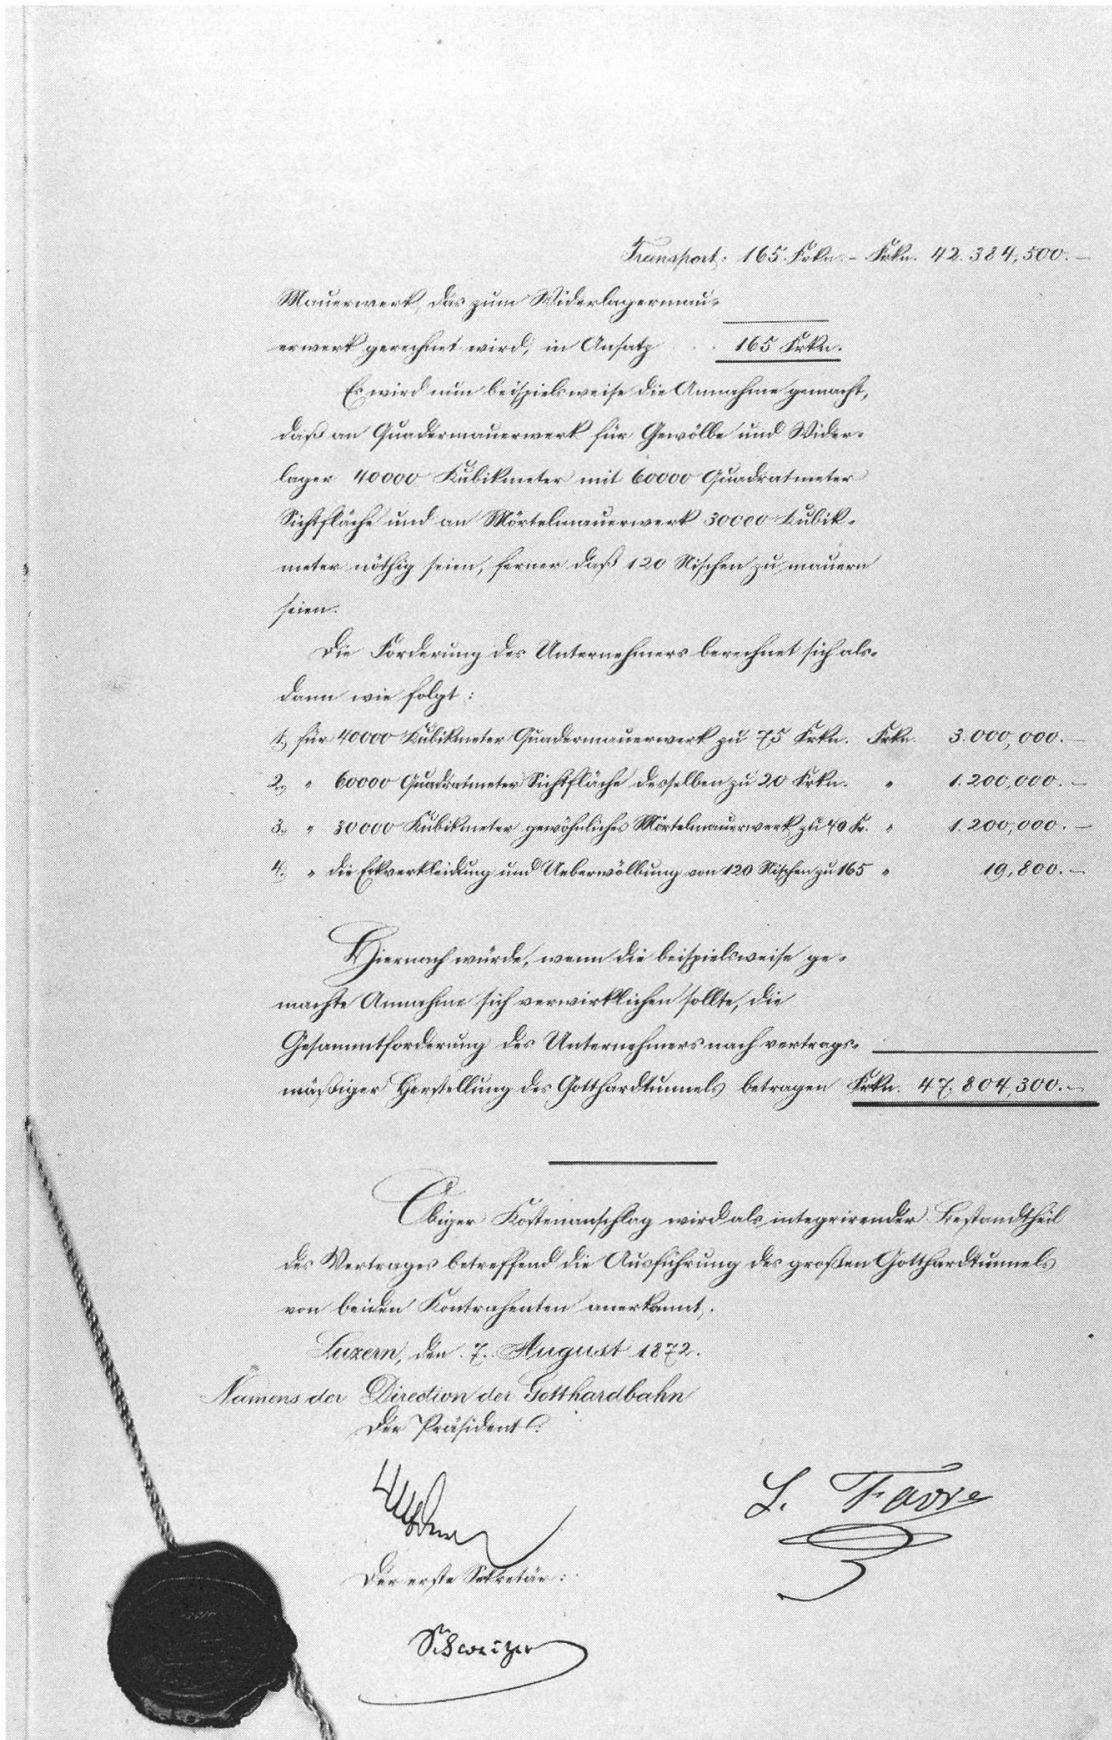 Transport: 165. Frkn. – Frkn. 42.384,500.–
Mauerwerk, das zum Widerlagermau-
erwerk gerechnet wird, in Ansatz . . 165 Frkn.
Es wird nun beispielsweise die Annahme gemacht,
daß an Quadermauerwerk für Gewölbe und Wider-
lager 40000 Kubikmeter mit 60000 Quadratmeter
Sichtfläche und an Mörtelmauerwerk 30000 Kubik-
meter nöthig seien, ferner daß 120 Nischen zu mauern
seien.
Die Forderung des Unternehmers berechnet sich als-
dann wie folgt:
1., für 40000 Kubikmeter Quadermauerwerk zu 75 Frkn. Frkn. 3.000,000.–
2., " 60000 Quadratmeter Sichtfläche desselben zu 20 Frkn. " 1.200,000.–
3., " 30000 Kubikmeter gewöhnliches Mörtelmauerwerk zu 40 Fr. " 1.200,000.–
4., " die Eckverkleidung und Ueberwölbung von 120 Nischen zu 165 " 19,800.–
Hiernach würde, wenn die beispielsweise ge-
machte Annahme sich verwirklichen sollte, die
Gesammtforderung des Unternehmers nach vertrags-
mäßiger Herstellung des Gotthardtunnels betragen Frkn. 47.804,300.–
Obiger Kostenanschlag wird als integrirender Bestandtheil
des Vertrages betreffend die Ausführung des großen Gotthardtunnels
von beiden Kontrahenten anerkannt.
Luzern, den 7. August 1872.
Namens der Direction der Gotthardbahn
Der Präsident:
L. Favre
Der erste Sekretär:
Schweizer